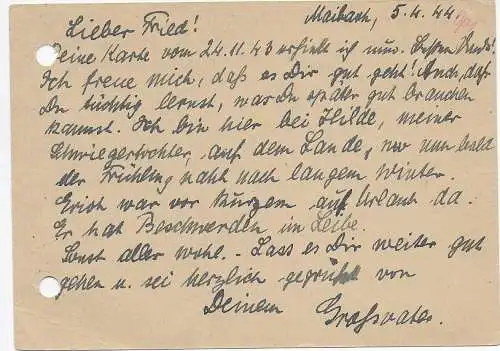 Maibach, 5.4.44.
Lieber Fried!
Deine Karte vom 24.11.43 erhielt ich nun. Besten Dank!
Ich freue mich, daß es Dir gut geht! Auch, daß
Du tüchtig lernst, was Du später gut brauchen
kannst. Ich bin hier bei Hilde, meiner
Schwiegertochter, auf dem Lande, wo nun bald
der Frühling naht nach langem Winter.
Erich war vor kurzem auf Urlaub da.
Er hat Beschwerden im Leibe.
Sonst aller wohl. - Lass es Dir weiter gut
gehen u. sei herzlich gegrüßt von
Deinem Grossvater.